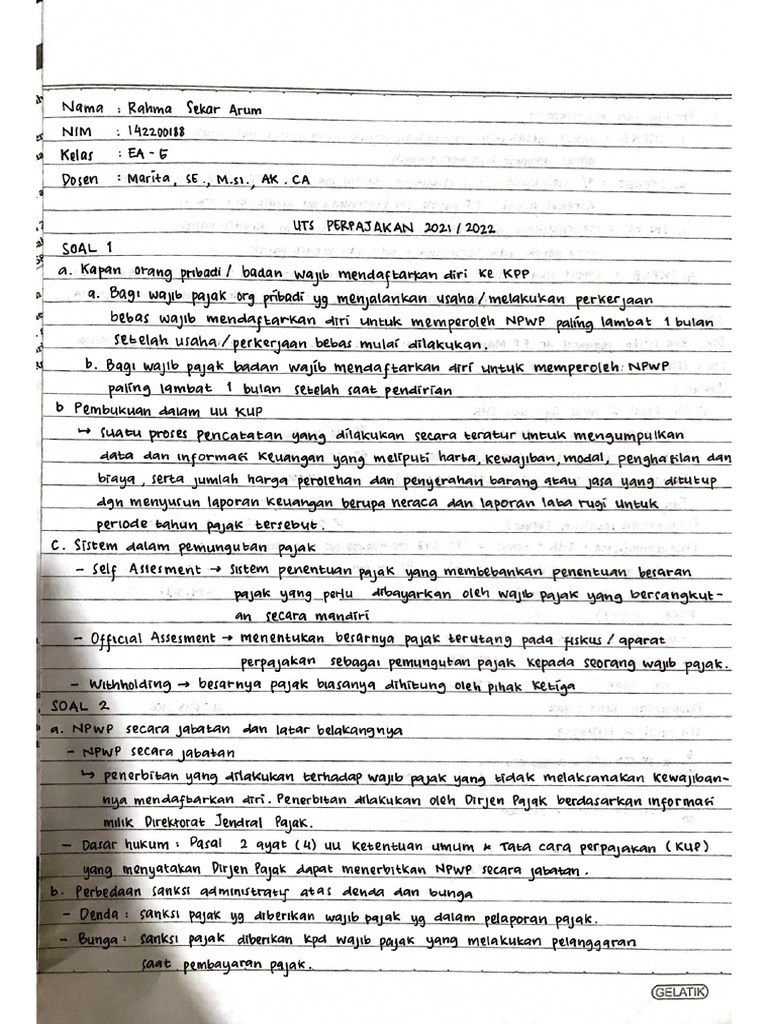 Nama : Rahma Sekar Arum
NIM : 142200188
Kelas : EA - E
Dosen : Marita, SE., M.si., AK. CA
UTS PERPAJAKAN 2021 / 2022
SOAL 1
a. Kapan orang pribadi / badan wajib mendaftarkan diri ke KPP
a. Bagi wajib pajak org pribadi yg menjalankan usaha / melakukan perkerjaan
bebas wajib mendaftarkan diri untuk memperoleh NPWP paling lambat 1 bulan
setelah usaha / perkerjaan bebas mulai dilakukan.
b. Bagi wajib pajak badan wajib mendaftarkan diri untuk memperoleh NPWP
paling lambat 1 bulan setelah saat pendirian
b Pembukuan dalam UU KUP
↳ suatu proses pencatatan yang dilakukan secara teratur untuk mengumpulkan
data dan informasi keuangan yang meliputi harta, kewajiban, modal, penghasilan dan
biaya, serta jumlah harga perolehan dan penyerahan barang atau jasa yang ditutup
dgn menyusun laporan keuangan berupa neraca dan laporan laba rugi untuk
periode tahun pajak tersebut.
C. Sistem dalam pemungutan pajak
- Self Assesment → sistem penentuan pajak yang membebankan penentuan besaran
pajak yang perlu dibayarkan oleh wajib pajak yang bersangkut-
an secara mandiri
- Official Assesment → menentukan besarnya pajak terutang pada fiskus / aparat
perpajakan sebagai pemungutan pajak kepada seorang wajib pajak.
- Withholding → besarnya pajak biasanya dihitung oleh pihak ketiga
SOAL 2
a. NPWP secara jabatan dan latar belakangnya
- NPWP secara jabatan
↳ penerbitan yang dilakukan terhadap wajib pajak yang tidak melaksanakan kewajiban-
nya mendaftarkan diri. Penerbitan dilakukan oleh Dirjen Pajak berdasarkan informasi
milik Direktorat Jendral Pajak.
- Dasar hukum : Pasal 2 ayat (4) UU Ketentuan umum & Tata cara perpajakan (KUP)
yang menyatakan Dirjen Pajak dapat menerbitkan NPWP secara jabatan.
b. Perbedaan sanksi administratif atas denda dan bunga
- Denda : sanksi pajak yg diberikan wajib pajak yg dalam pelaporan pajak.
- Bunga : sanksi pajak diberikan kpd wajib pajak yang melakukan pelanggaran
saat pembayaran pajak.
GELATIK